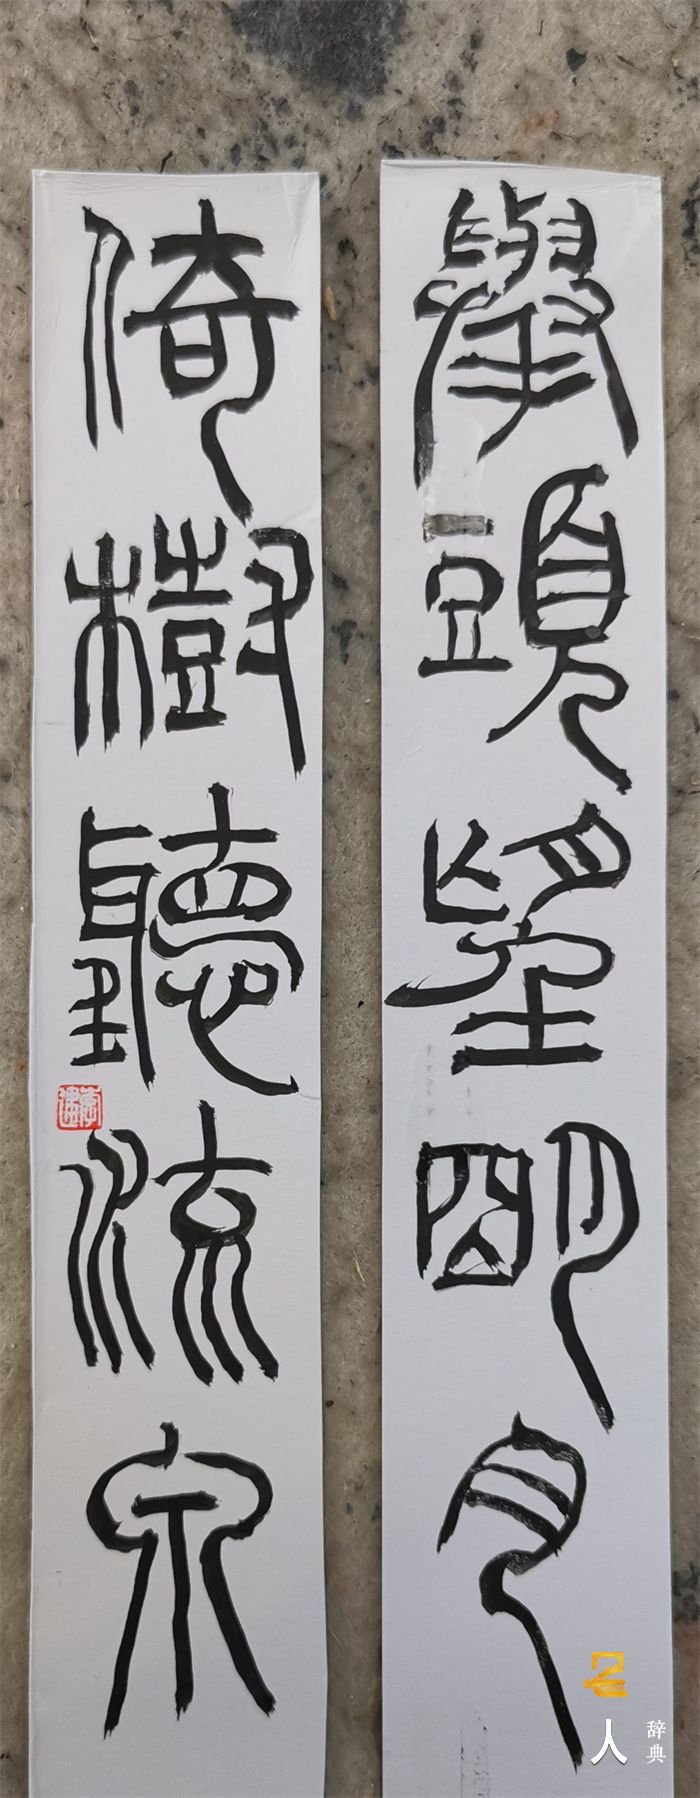 舉頭望明月
倚樹聽流泉
名人
辞典